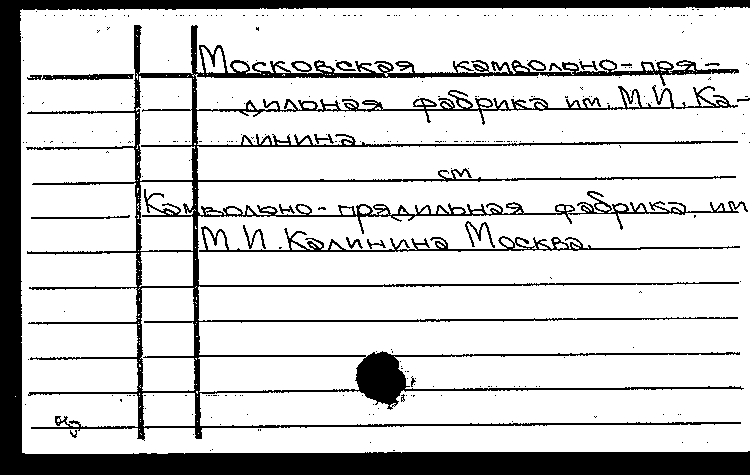 Московская камвольно-пря-
дильная фабрика им. М.И. Ка-
линина.
см.
Камвольно-прядильная фабрика им
М.И. Калинина Москва.